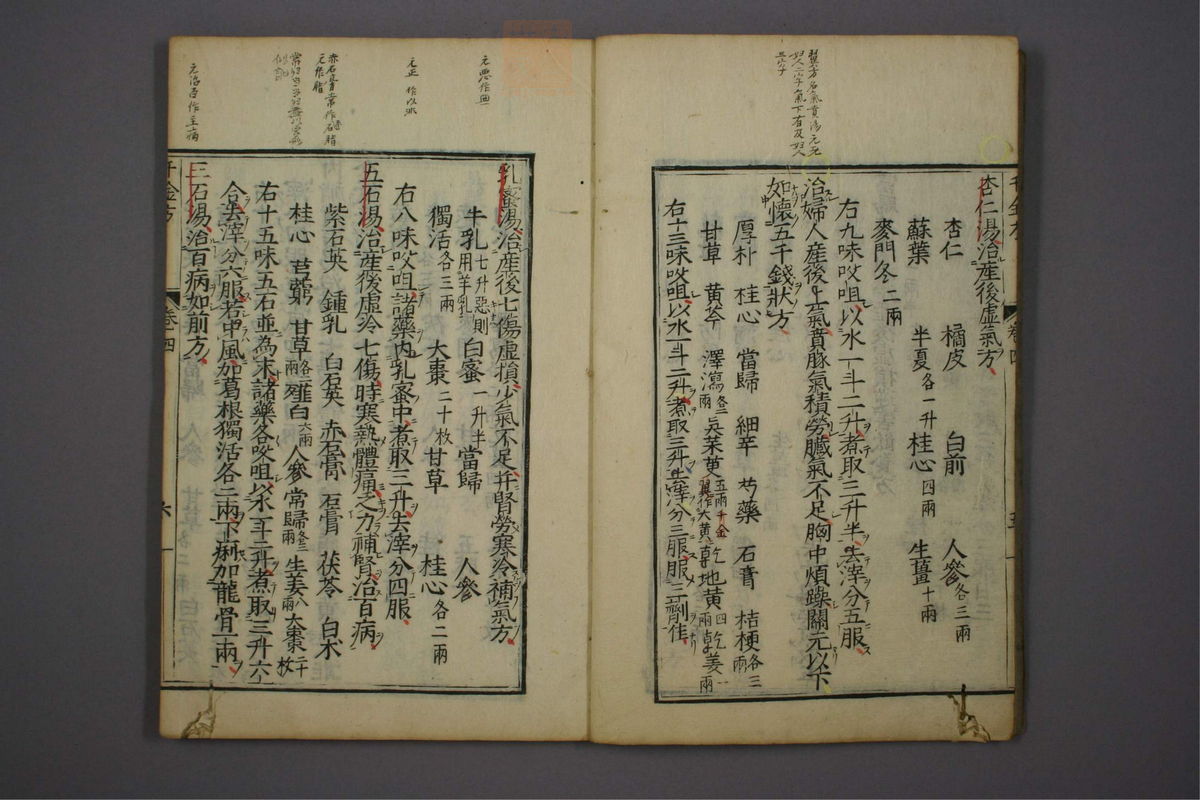 翼方名氣賁湯元无
婦人二字氣下有及婦人
三字
杏仁湯治產後虛氣方
杏仁 橘皮 白前 人參各三兩
蘇葉 半夏各一升 桂心四兩 生薑十兩
麥門冬二兩
右九味㕮咀以水一斗二升煮取三升半去滓分五服
治婦人產後上氣賁豚氣積勞臟氣不足胸中煩躁關元以下
如懷五千錢狀方
厚朴 桂心 當歸 細辛 芍藥 石膏 桔梗各三兩
甘草 黃芩 澤瀉各二兩 吳茱萸五兩千金翼作大黃 乾地黃四兩 乾姜一兩
右十三味㕮咀以水一斗二升煮取三升去滓分三服服三劑佳
千金方 卷四 五
元悪作無
元正
赤石膏當作石脂
元作脂
元治百作主病
乳蜜湯治產後七傷虛損少氣不足并腎勞寒冷補氣方
牛乳七升惡則用羊乳 白蜜一升半 當歸 人參
獨活各三兩 大棗二十枚 甘草 桂心各二兩
右八味㕮咀諸藥內乳蜜中煮取三升去滓分四服
五石湯治產後虛冷七傷時寒熱體痛乏力補腎治百病
紫石英 鍾乳 白石英 赤石膏 石膏 茯苓 白朮
桂心 芎藭 甘草各二兩 薤白六兩 人參 常歸各三兩 生姜八兩 大棗二十枚
右十五味五石並為末諸藥各㕮咀以水一斗二升煮取三升六
合去滓分六服若中風加葛根獨活各二兩下痢加龍骨一兩
三石湯治百病如前方
千金方 卷四 六